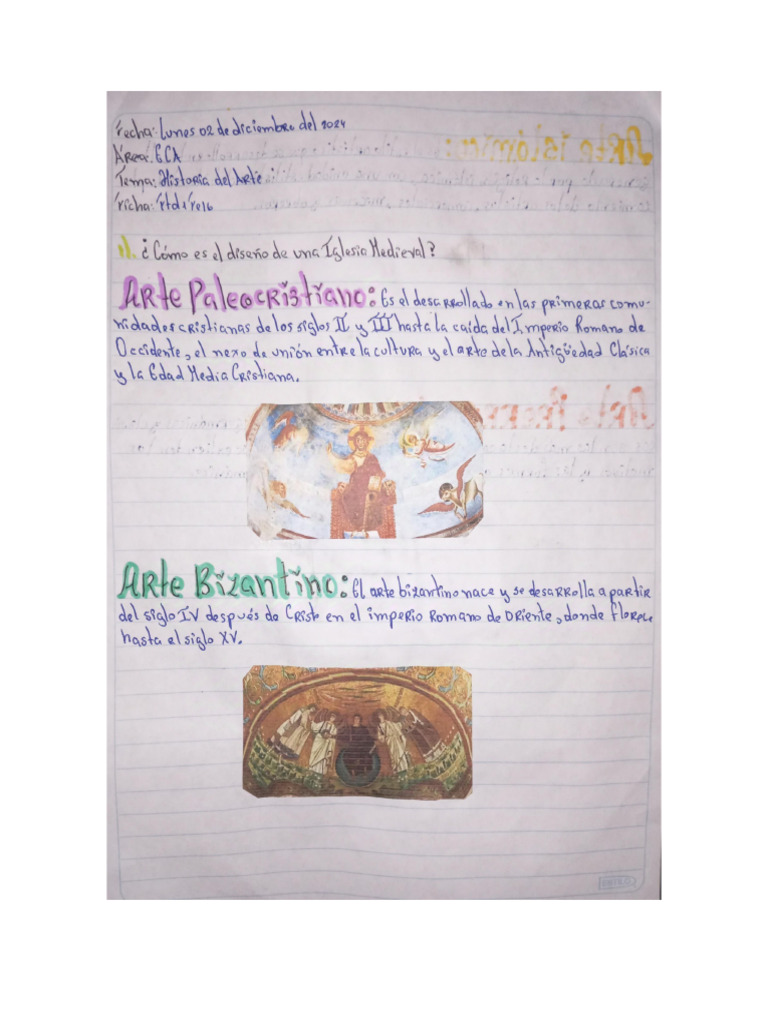 Fecha: Lunes 02 de diciembre del 2024
Área: ECA
Tema: Historia del Arte
Ficha:
1). ¿Cómo es el diseño de una Iglesia Medieval?
Arte Paleocristiano: Es el desarrollado en las primeras comu-
nidades cristianas de los siglos II y III hasta la caída del Imperio Romano de
Occidente, el nexo de unión entre la cultura y el arte de la Antigüedad Clásica
y la Edad Media Cristiana.
Arte Bizantino: El arte bizantino nace y se desarrolla a partir
del siglo IV después de Cristo en el imperio Romano de Oriente, donde Florece
hasta el siglo XV.